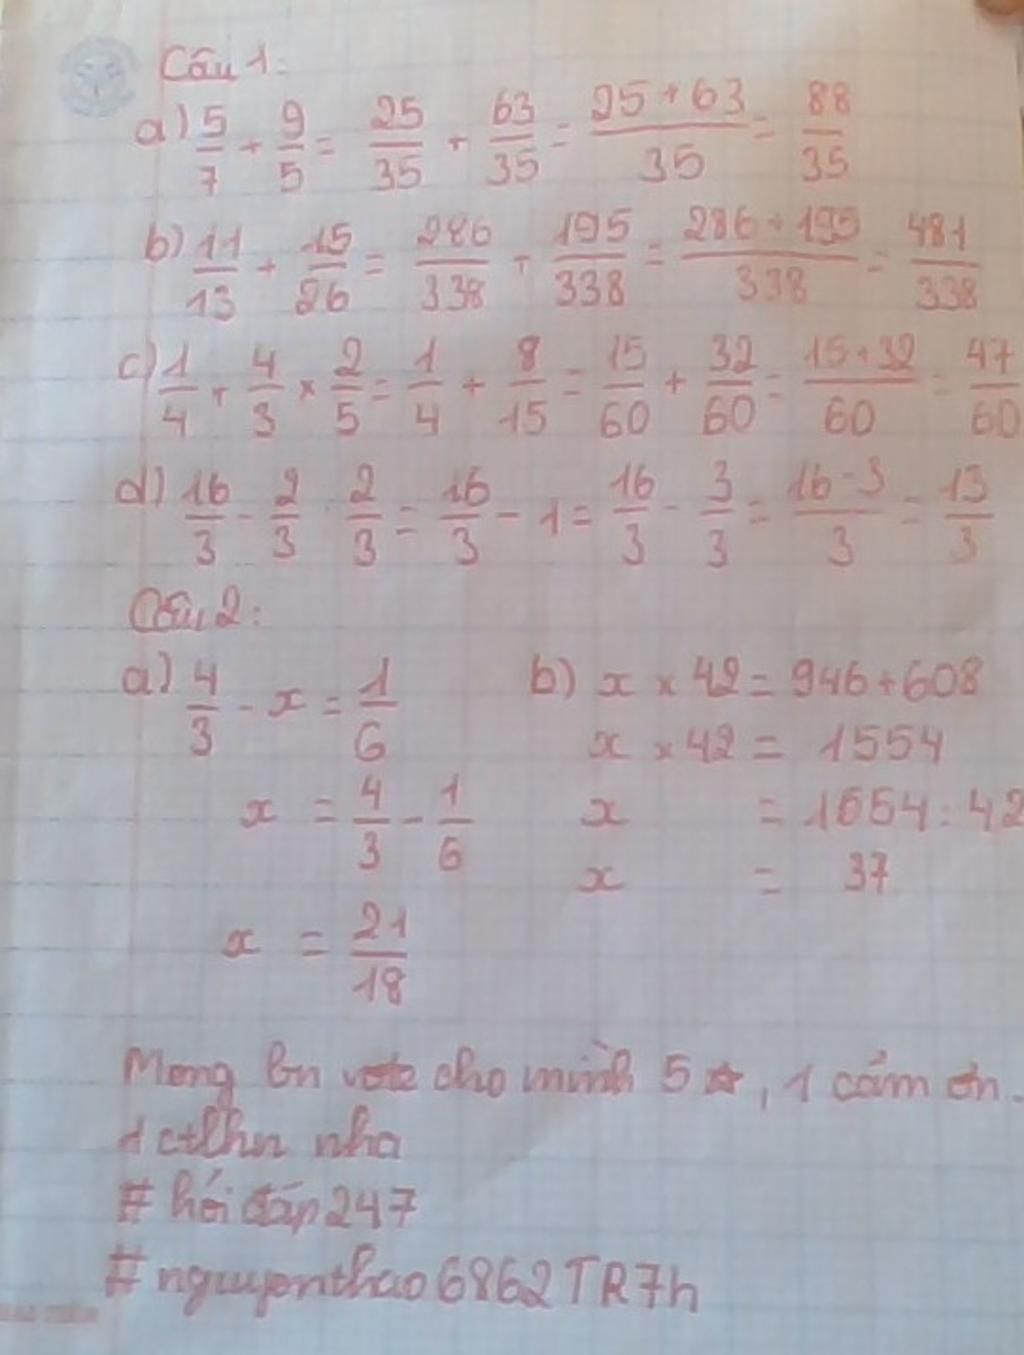 Câu 1:
a) 5/7 + 9/5 = 25/35 + 63/35 = 25+63/35 = 88/35
b) 11/13 + 15/26 = 286/338 + 195/338 = 286+195/338 = 481/338
c) 1/4 + 4/3 × 2/5 = 1/4 + 8/15 = 15/60 + 32/60 = 15+32/60 = 47/60
d) 16/3 - 2/3 : 2/3 = 16/3 - 1 = 16/3 - 3/3 = 16-3/3 = 13/3
Câu 2:
a) 4/3 - x = 1/6
x = 4/3 - 1/6
x = 21/18
b) x × 42 = 946 + 608
x × 42 = 1554
x = 1554 : 42
x = 37
Mong bn vote cho mình 5 ☆, 1 cảm ơn.
1 ctlhn nha
# hỏi đáp 247
# nguyenthao6862TR7h